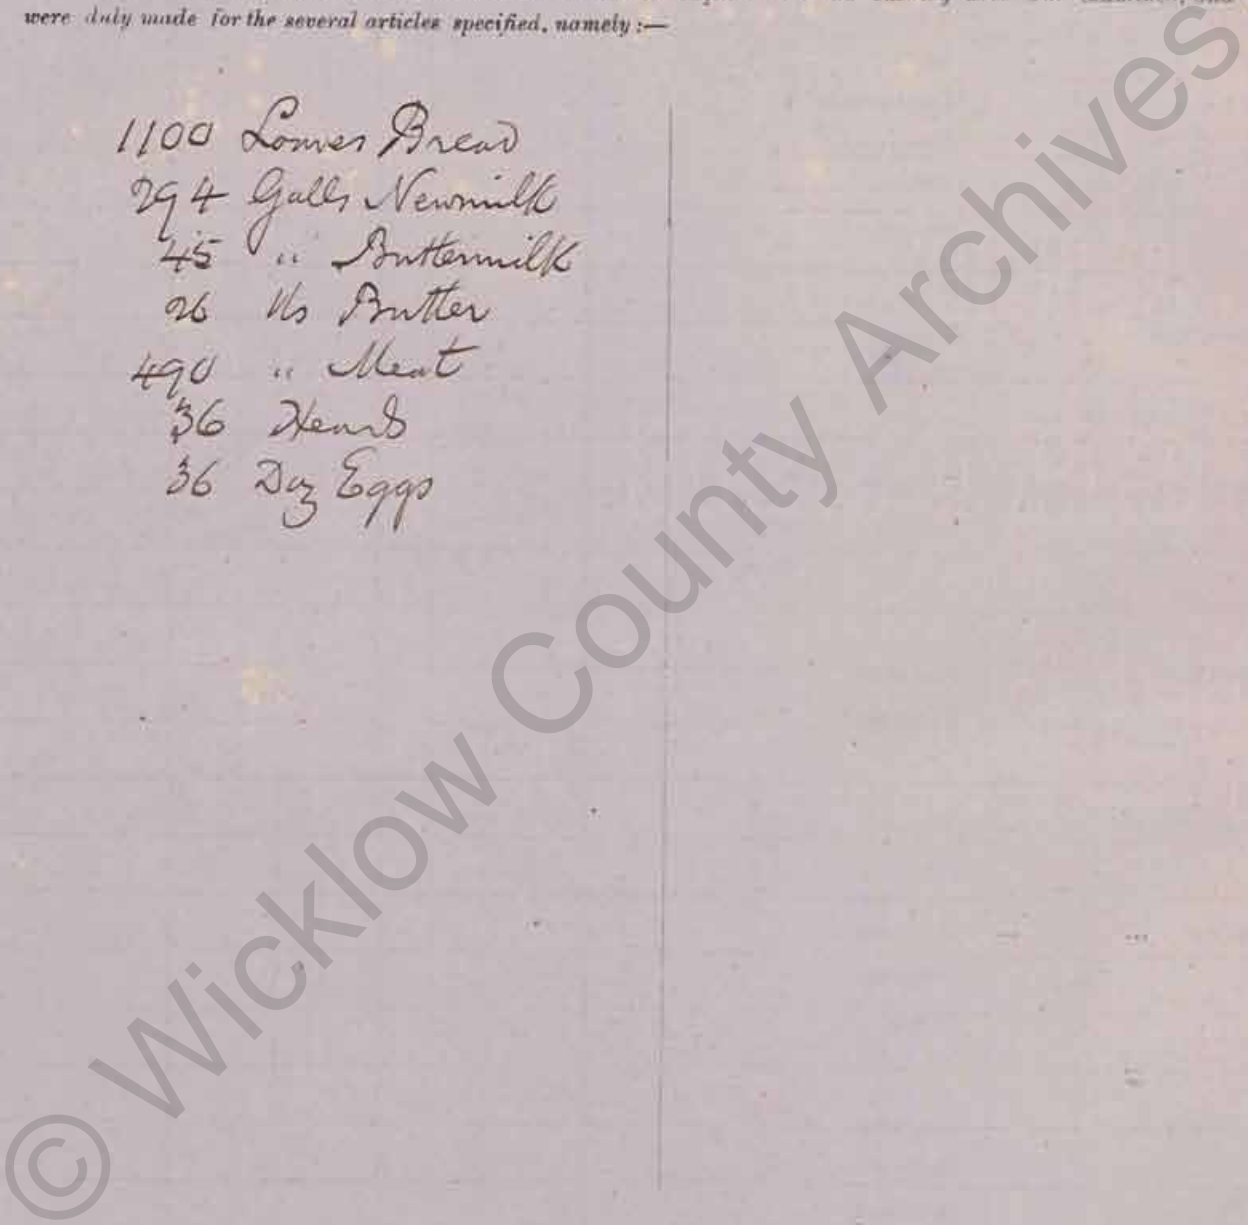 were duly made for the several articles specified, namely :—
1100 Loaves Bread
294 Galls Newmilk
45 " Buttermilk
26 lbs Butter
490 " Meat
36 Heads
36 Doz Eggs
© Wicklow County Archives